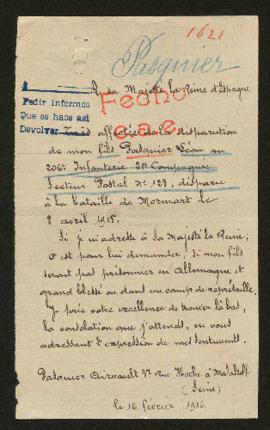 1621
Pasquier
A sa Majesté la Reine d'Espagne
Pedir informes
Que se haga así
Devolver
Fecho
Très affectée de la disparition
de mon fils Pasquier Léon au
206e Infanterie 21e Compagnie
Secteur Postal No 129, disparu
à la bataille de Mormart le
8 avril 1915.
Si je m'adresse à sa Majesté la Reine;
c'est pour lui demander; si mon fils
serait pas prisonnier en Allemagne et
grand blessé ou dans un camp de représaille.
Je prie votre excellence de trouver là bas,
la consolation que j'attends, en vous
adressant l'expression de mes sentiments.
Pasquier 37 rue Hoche à Malakoff
(Seine)
le 16 février 1916.